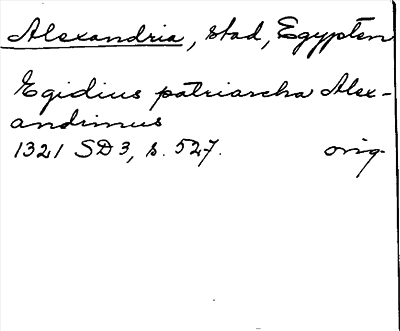 Alexandria, stad, Egypten
Egidius patriarcha Alex-
andrinus
1321 SD3, s. 527. orig.